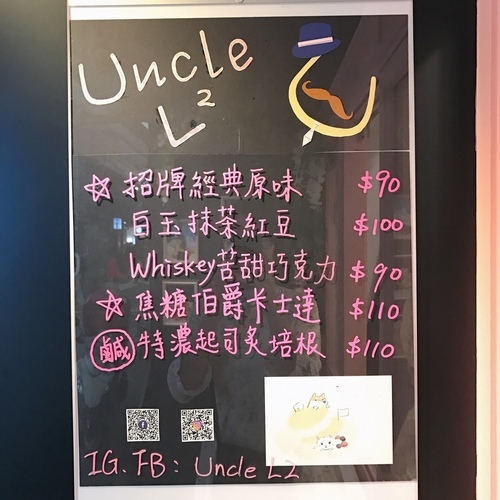 Uncle
L²
☆ 招牌經典原味 $90
白玉抹茶紅豆 $100
Whiskey苦甜巧克力 $90
☆ 焦糖伯爵卡士達 $110
鹹 特濃起司炙培根 $110
IG. FB: Uncle L2